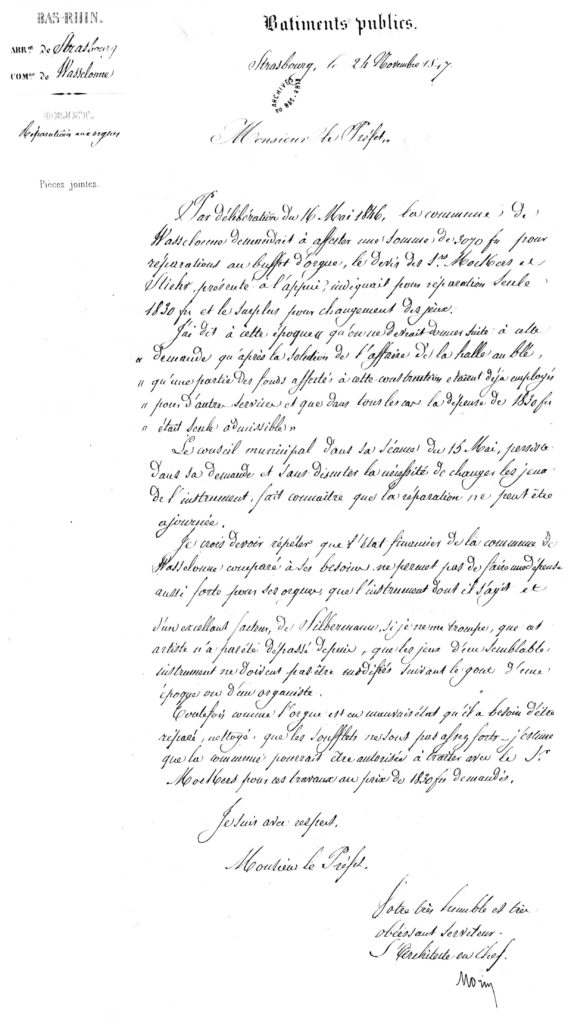 BAS-RHIN.
ARR.t de Strasbourg
COM.ne de Wasselonne
OBJET.
Réparations aux orgues
Pièces jointes.
Batiments publics.
Strasbourg, le 24 Novembre 1847.
ARCHIVES
DU BAS-RHIN
Monsieur le Préfet,
Par délibération du 16 Mai 1846, la commune de
Wasselonne demandait à affecter une somme de 3070 fr pour
réparations au buffet d'orgue, le devis des S.rs Moekers et
Stiehr, présenté à l'appui, indiquait pour réparation seule
1830 fr et le surplus pour changement des jeux.
J'ai dit à cette époque « qu'on ne devait donner suite à cette
« demande qu'après la solution de l'affaire de la halle au blé,
« qu'une partie des fonds affectés à cette construction étaient déjà employés
« pour d'autre services et que dans tous les cas la dépense de 1830 fr
« était seule admissible »
Le conseil municipal dans sa séance du 15 Mai, persiste
dans sa demande et sans discuter la nécessité de changer les jeux
de l'instrument, fait connaître que la réparation ne peut être
ajournée.
Je crois devoir répéter que l'état financier de la commune de
Wasselonne comparé à ses besoins ne permet pas de faire une dépense
aussi forte pour ses orgues, que l'instrument dont il s'agit est
d'un excellent facteur, de Silbermann, si je ne me trompe, que cet
artiste n'a pas été dépassé depuis, que les jeux d'un semblable
instrument ne doivent pas être modifiés suivant le gout d'une
époque ou d'un organiste.
Toutefois comme l'orgue est en mauvais état qu'il a besoin d'être
réparé, nettoyé, que les soufflets ne sont pas assez forts, j'estime
que la commune pourrait être autorisée à traiter avec le S.r
Moekers pour ces travaux au prix de 1830 fr demandés.
Je suis avec respect,
Monsieur le Préfet,
Votre très humble et très
obéissant serviteur.
L'Architecte en Chef.
Morin